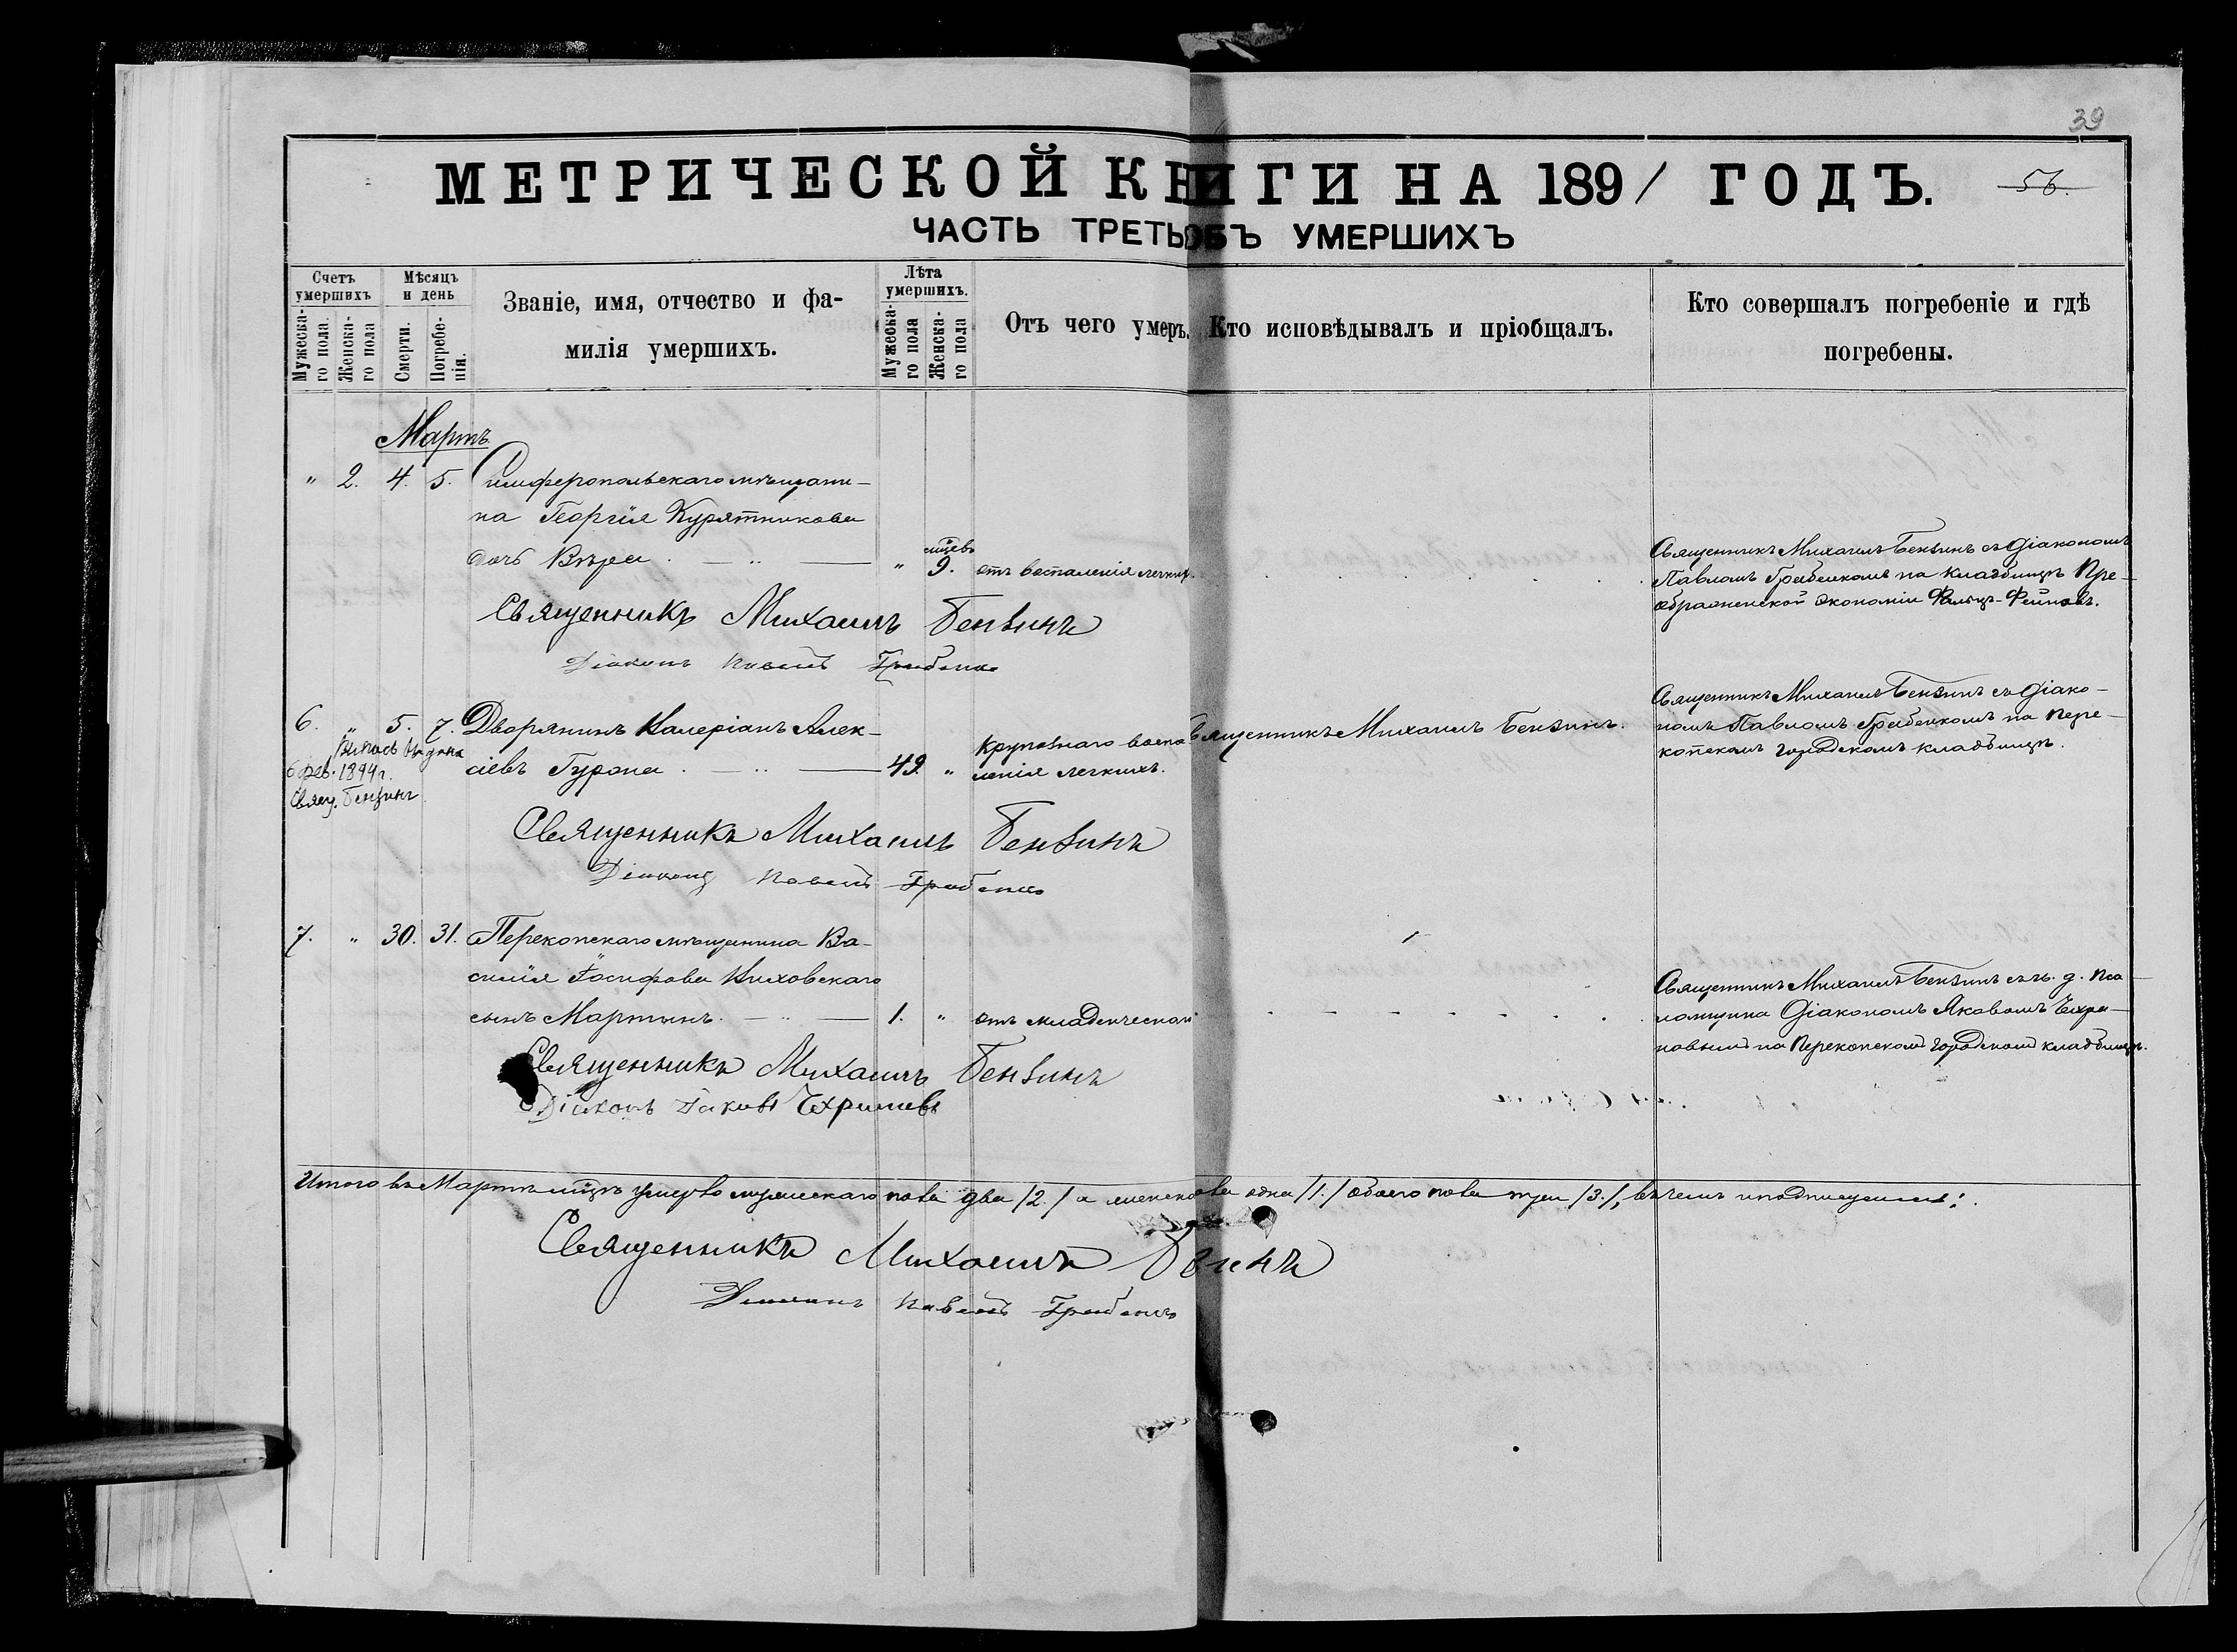 39
МЕТРИЧЕСКОЙ КНИГИ НА 1891 ГОДЪ.
56.
ЧАСТЬ ТРЕТЬ ОБЪ УМЕРШИХЪ
Счетъ умершихъ
Мужеска-го пола.
Женска-го пола
Мѣсяцъ и день
Смерти.
Погребе-нія.
Званіе, имя, отчество и фа-
милія умершихъ.
Лѣта умершихъ.
Мужеска-го пола
Женска-го пола
Отъ чего умеръ.
Кто исповѣдывалъ и пріобщалъ.
Кто совершалъ погребеніе и гдѣ
погребены.
Мартъ
" 2. 4. 5. Симферопольскаго мѣщани-
на Георгія Курятникова
дочь Вѣра. " 9. отъ воспаленія легкихъ.
Священникъ Михаилъ Бензинъ съ Діакономъ
Павломъ Грабенкомъ на кладбищѣ Пре-
ображенской Экономіи Фальцъ-Фейновъ.
Священникъ Михаилъ Бензинъ
Діаконъ Павелъ Грабенко
6. " 5. 7. Дворянинъ Валеріанъ Алек-
сіевъ Гурона. 49. " Крупознаго воспа
ленія легкихъ.
Священникъ Михаилъ Бензинъ.
Священникъ Михаилъ Бензинъ съ Діако-
номъ Павломъ Грабенкомъ на Пере-
копскомъ городскомъ кладбищѣ.
6 фев. 1894 г.
Свящ. Бензинъ
Священникъ Михаилъ Бензинъ
Діаконъ Павелъ Грабенко
7. " 30. 31. Перекопскаго мѣщанина Ва-
силія Іосифова
сынъ Мартынъ. 1. " отъ младенческой
Священникъ Михаилъ Бензинъ съ и. д. Пса
ломщика Діакономъ Яковомъ
новымъ на Перекопскомъ городскомъ кладбищѣ.
Священникъ Михаилъ Бензинъ
Діаконъ Іаковъ
Итого въ Мартѣ мцѣ умерло мужескаго пола два /2./ а женск одна /1./ обоего пола три /3./, въ чемъ и подписуемся:
Священникъ Михаилъ
Діаконъ Павелъ Грабенко